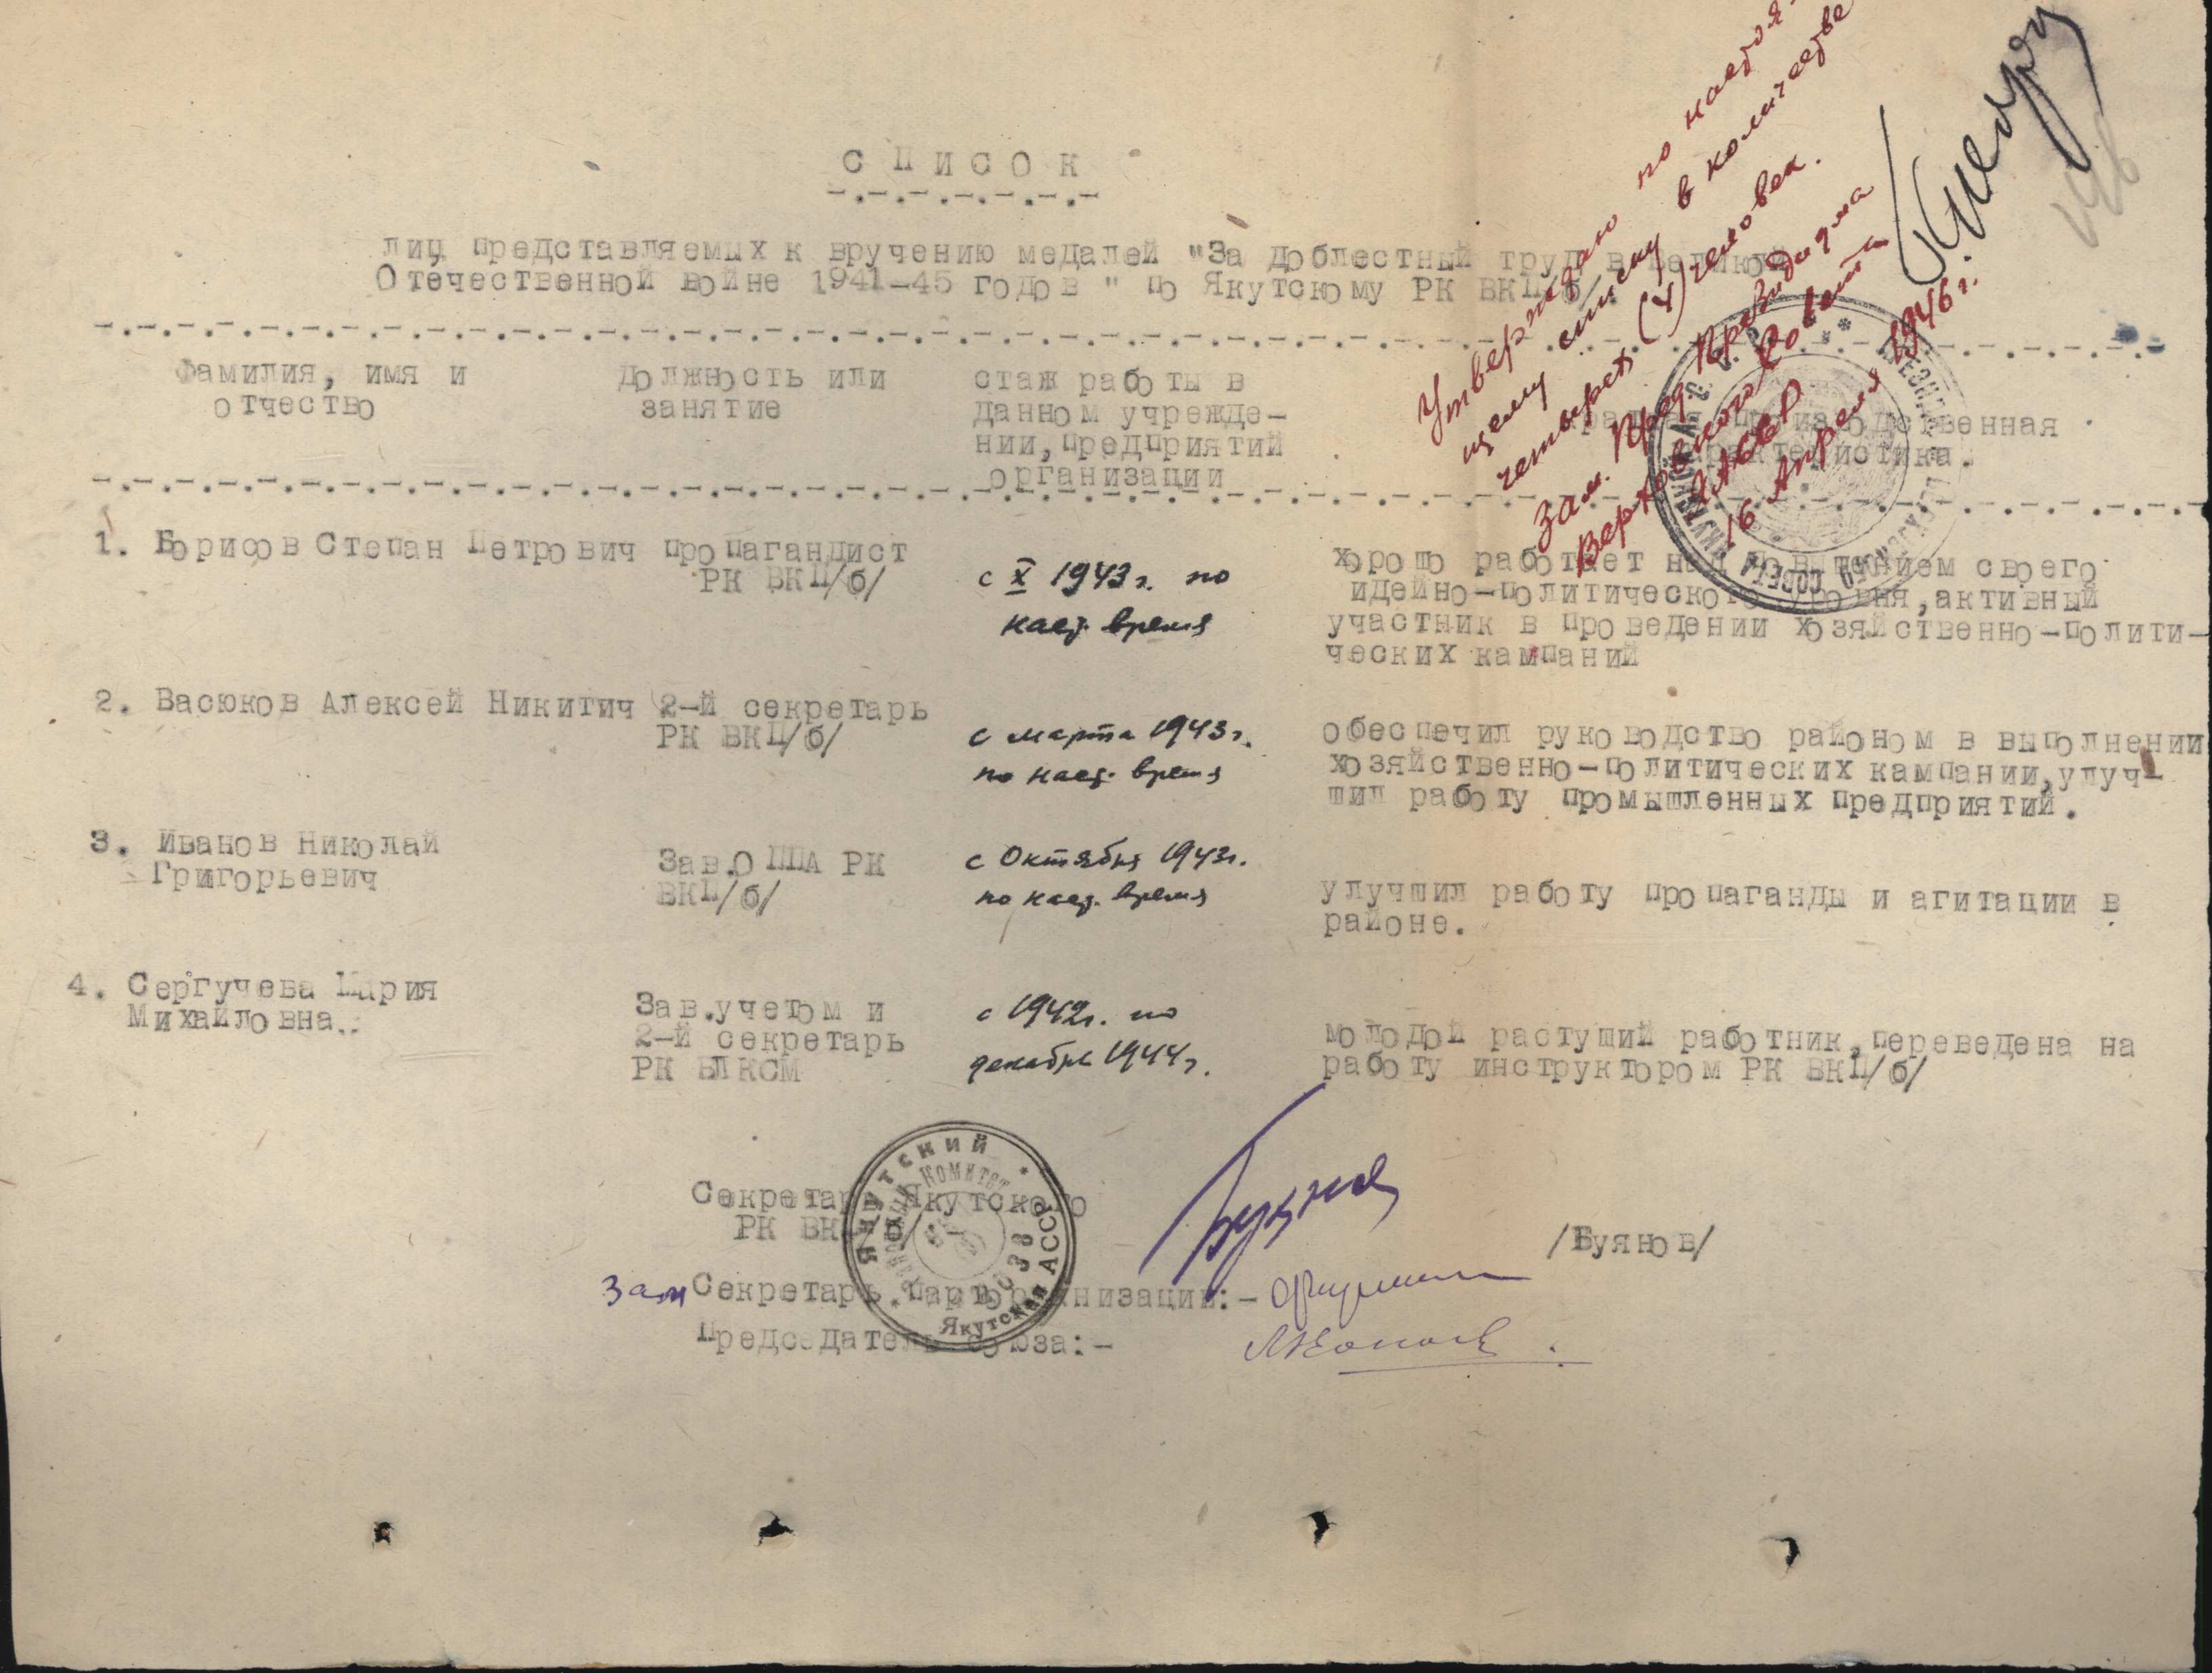 СПИСОК
лиц представляемых к вручению медалей "За доблестный труд в Великой
Отечественной войне 1941-45 годов" по Якутскому РК ВКП/б/.
Утверждаю по настоя-
щему списку в количестве
четырех (4) человек.
Зам. Пред. Президиума
Верховного Совета
ЯАССР
16 Апреля 1946 г.
фамилия, имя и отчество
должность или занятие
стаж работы в
данном учрежде-
нии, предприятий
организации
производственная
характеристика.
1. Борисов Степан Петрович пропагандист
РК ВКП/б/
с X 1943 г. по
наст. время
хорошо работает над повышением своего
идейно-политического уровня, активный
участник в проведении хозяйственно-полити-
ческих кампаний
2. Васюков Алексей Никитич 2-й секретарь
РК ВКП/б/
с марта 1943 г.
по наст. время
обеспечил руководство районом в выполнении
хозяйственно-политических кампании, улуч-
шил работу промышленных предприятий.
3. Иванов Николай
Григорьевич
Зав.О ППА РК
ВКП/б/
с Октября 1943 г.
по наст. время
улучшил работу пропаганды и агитации в
районе.
4. Сергучева Мария
Михайловна..
Зав.учетом и
2-й секретарь
РК ВЛКСМ
с 1942 г. по
декабрь 1944 г.
молодой растущий работник, переведена на
работу инструктором РК ВКП/б/
Секретарь Якутского
РК ВКП/б/
/Буянов/
Зам Секретарь парторганизации:-
Председатель союза:-
ЯКУТСКИЙ
РАЙОННЫЙ КОМИТЕТ
0038
Якутская АССР